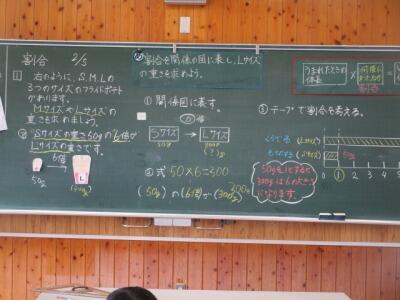 割合 2/5
1 右のように、S.M.Lの
3つのサイズのフライドポテト
があります。
MサイズやLサイズの
重さを求めましょう。
Sサイズの重さ50gの6倍が
Lサイズの重さです。
6倍
50g
L
(300g)
割合を関係の図に表し、Lサイズ
の重さを求めよう。
① 関係図に表す。
⑥倍
Sサイズ → Lサイズ
50g
300g
(?)g
② 式 50×6=300
300g
(50g)の(6倍)が(300g)
③ テープで割合を考える。
うまれたときの
体長
×
割合
くらべる (Lサイズ)
もとにする (Sサイズ)
50g
0 1 2 3 4 5
50gを1とすると
300gは6の大きさ
になります。